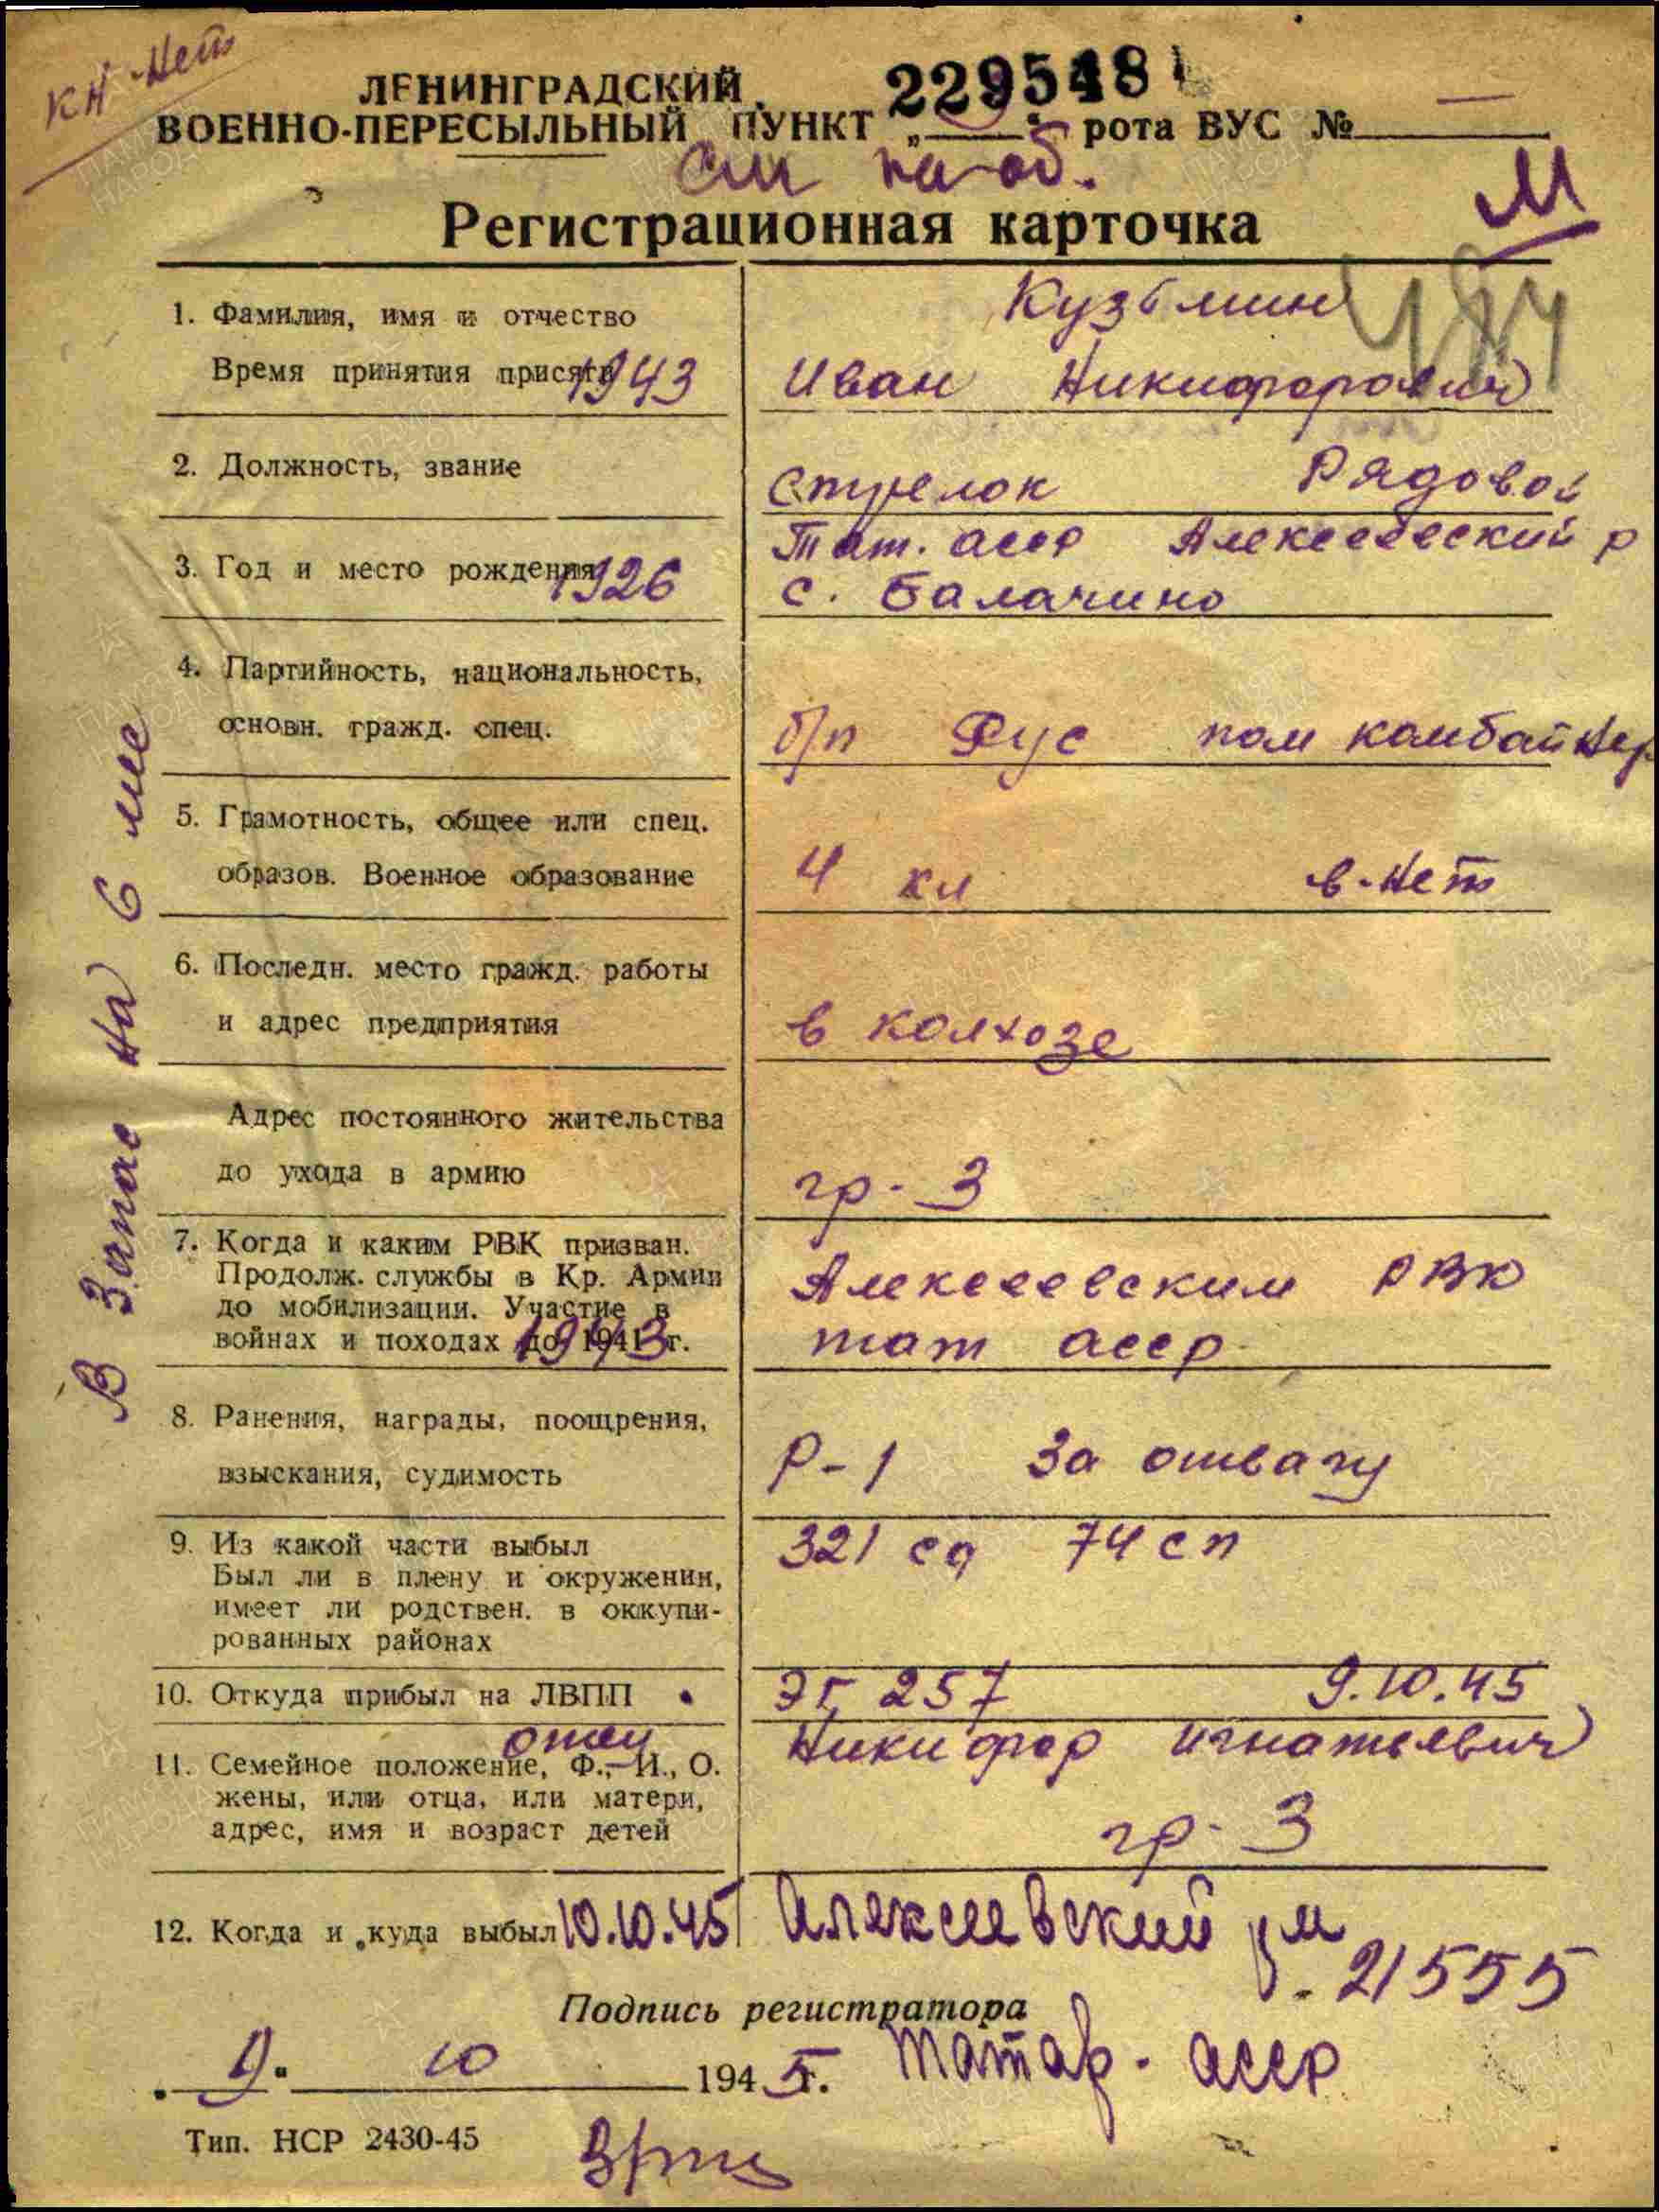 кн - нет
ЛЕНИНГРАДСКИЙ 229548
ВОЕННО-ПЕРЕСЫЛЬНЫЙ ПУНКТ „ “ рота ВУС № —
см на об.
М
Регистрационная карточка
1. Фамилия, имя и отчество Кузьмин
Время принятия присяги 1943 Иван Никифорович
2. Должность, звание Стрелок Рядовой
Тат. асср Алексеевский р
3. Год и место рождения 1926 с. Балачино
4. Партийность, национальность,
основн. гражд. спец. б/п Рус пом комбайнер
5. Грамотность, общее или спец.
образов. Военное образование 4 кл в-нет
6. Последн. место гражд. работы
и адрес предприятия в колхозе
Адрес постоянного жительства
до ухода в армию гр-3
7. Когда и каким РВК призван.
Продолж. службы в Кр. Армии Алексеевским РВК
до мобилизации. Участие в
войнах и походах до 1941 г. 1943 тат асср
8. Ранения, награды, поощрения,
взыскания, судимость Р-1 За отвагу
9. Из какой части выбыл 321 сд 74 сп
Был ли в плену и окружении,
имеет ли родствен. в оккупи-
рованных районах
10. Откуда прибыл на ЛВПП ЭГ 257 9.10.45
отец Никифор Игнатьевич
11. Семейное положение, Ф., И., О.
жены, или отца, или матери,
адрес, имя и возраст детей гр-3
12. Когда и куда выбыл 10.10.45 Алексеевский
21555
Подпись регистратора
Татар. асср
9. 10 1945 г.
Тип. НСР 2430-45
В запас на 6 ме